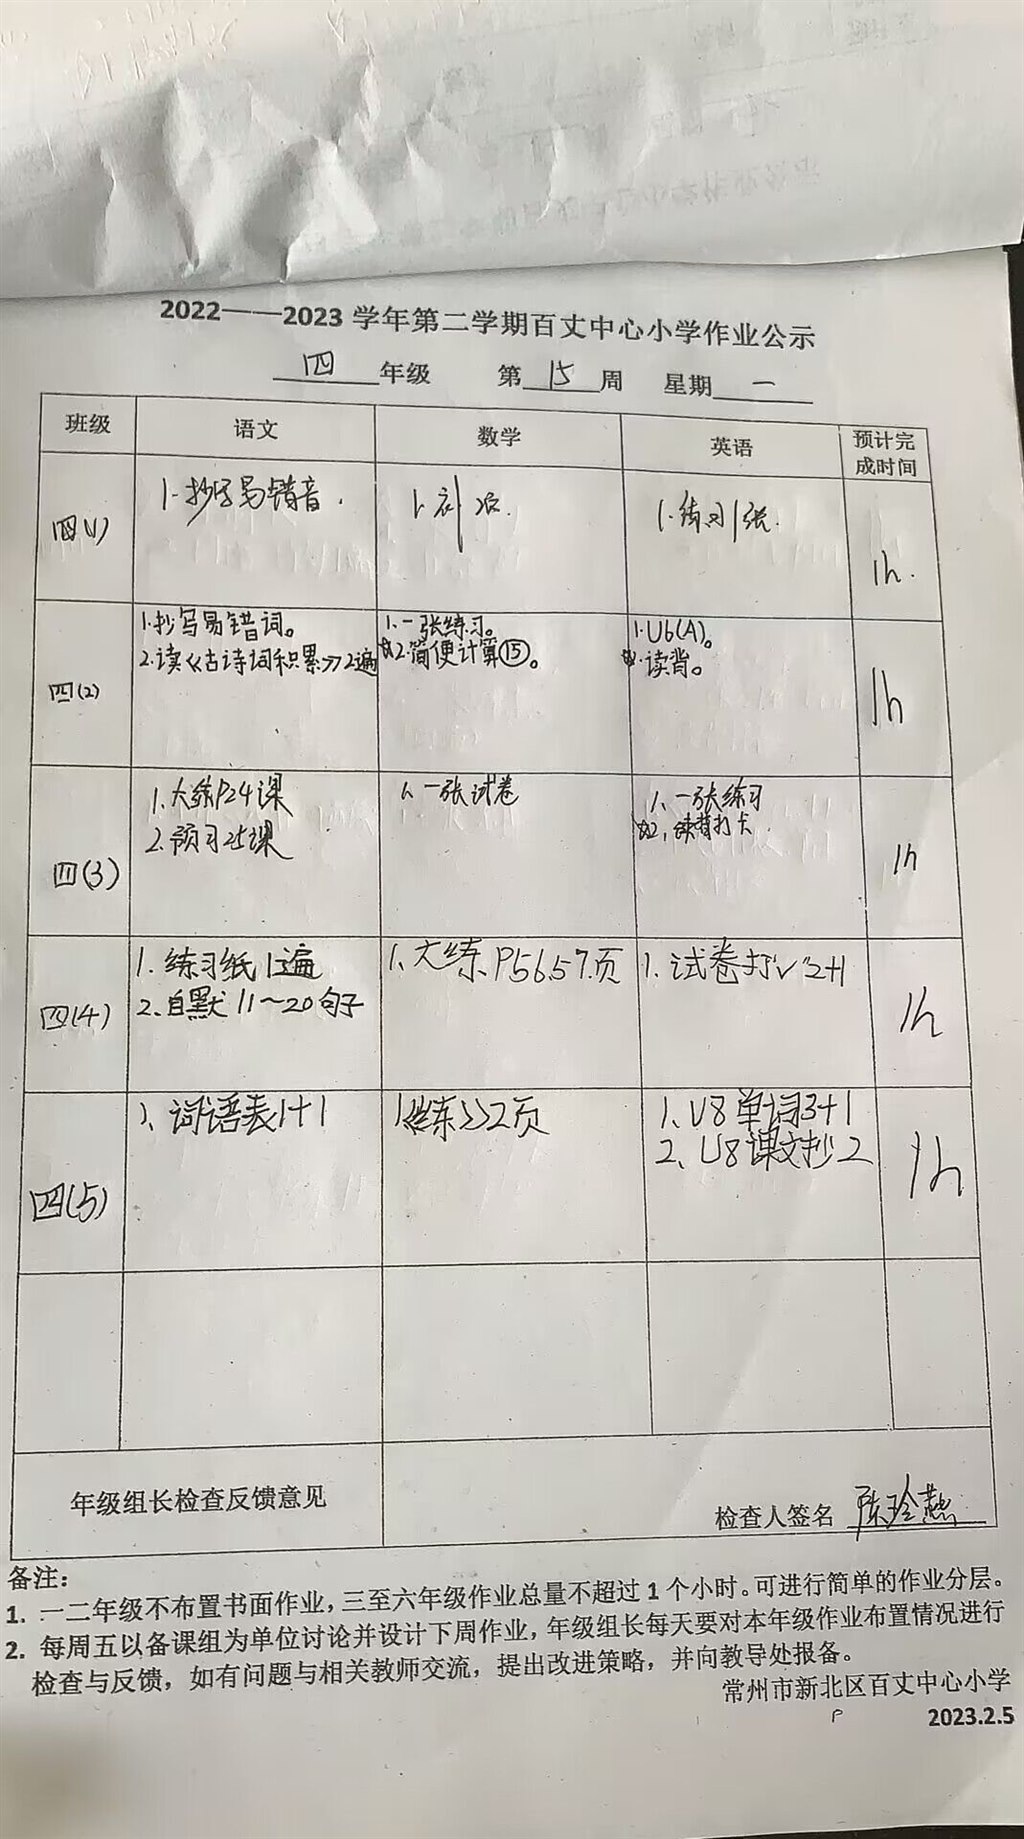 2022——2023 学年第二学期百丈中心小学作业公示
四 年级 第 15 周 星期 一
班级 语文 数学 英语 预计完成时间
四(1) 1.抄写易错音. 1. 1.练习1张. 1h.
四(2) 1.抄写易错词。 1.一张练习。 1.U6(A)。 1h
2.读《古诗词积累》2遍 ☆2.简便计算⑮。 读背。
四(3) 1.大练P24课 1.一张试卷 1.一张练习 1h
2.预习25课 ☆2.读背打卡
四(4) 1.练习纸1遍 1.大练P56.57.页 1.试卷订√2+1 1h
2.自默11~20句子
四(5) 1.词语表1+1 1《练》2页 1.U8单词3+1 1h
2.U8课文抄2
年级组长检查反馈意见 检查人签名 陈玲燕
备注：
1. 一二年级不布置书面作业，三至六年级作业总量不超过 1 个小时。可进行简单的作业分层。
2. 每周五以备课组为单位讨论并设计下周作业，年级组长每天要对本年级作业布置情况进行
检查与反馈，如有问题与相关教师交流，提出改进策略，并向教导处报备。
常州市新北区百丈中心小学
2023.2.5